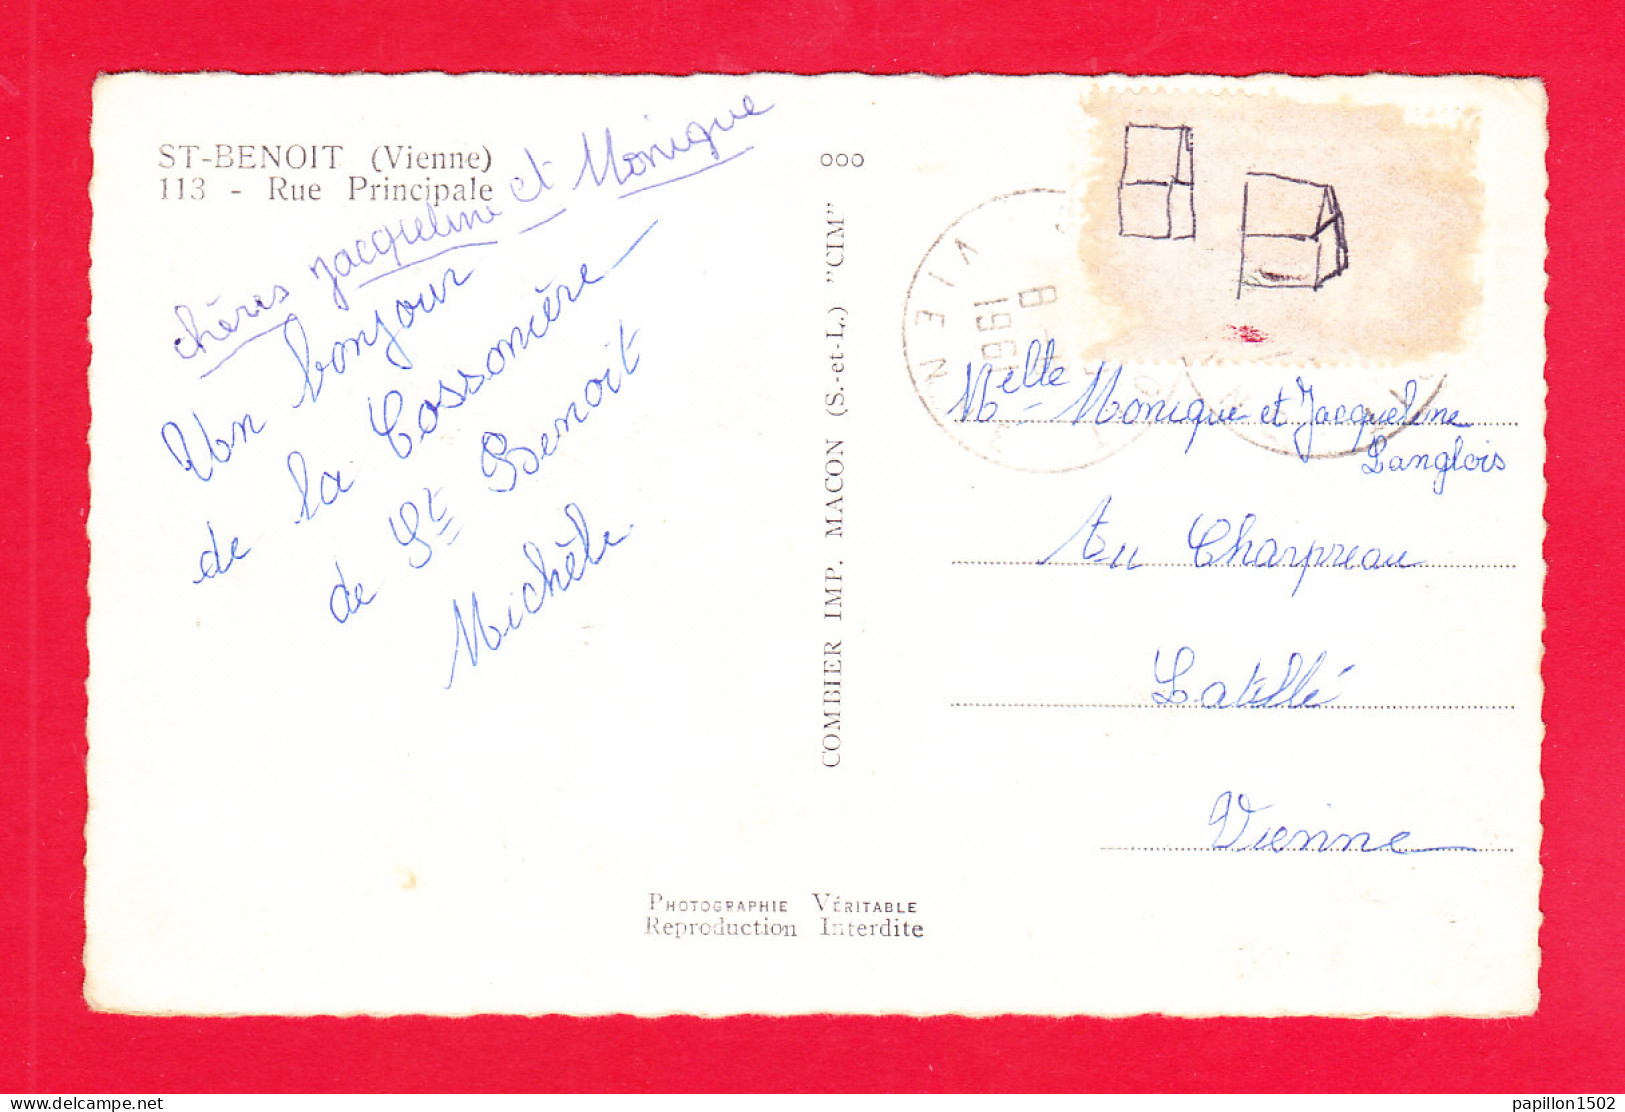 ST-BENOIT (Vienne)
113 - Rue Principale
chères Jacqueline et Monique
Un bonjour
de la Cossonière
de St Benoit
Michèle
COMBIER IMP. MACON (S.-et-L.) "CIM"
ooo
VIENNE
1961
Melle Monique et Jacqueline
Langlois
Au Charpreau
Latillé
Vienne
PHOTOGRAPHIE VÉRITABLE
Reproduction Interdite
delcampe.net
papillon1502